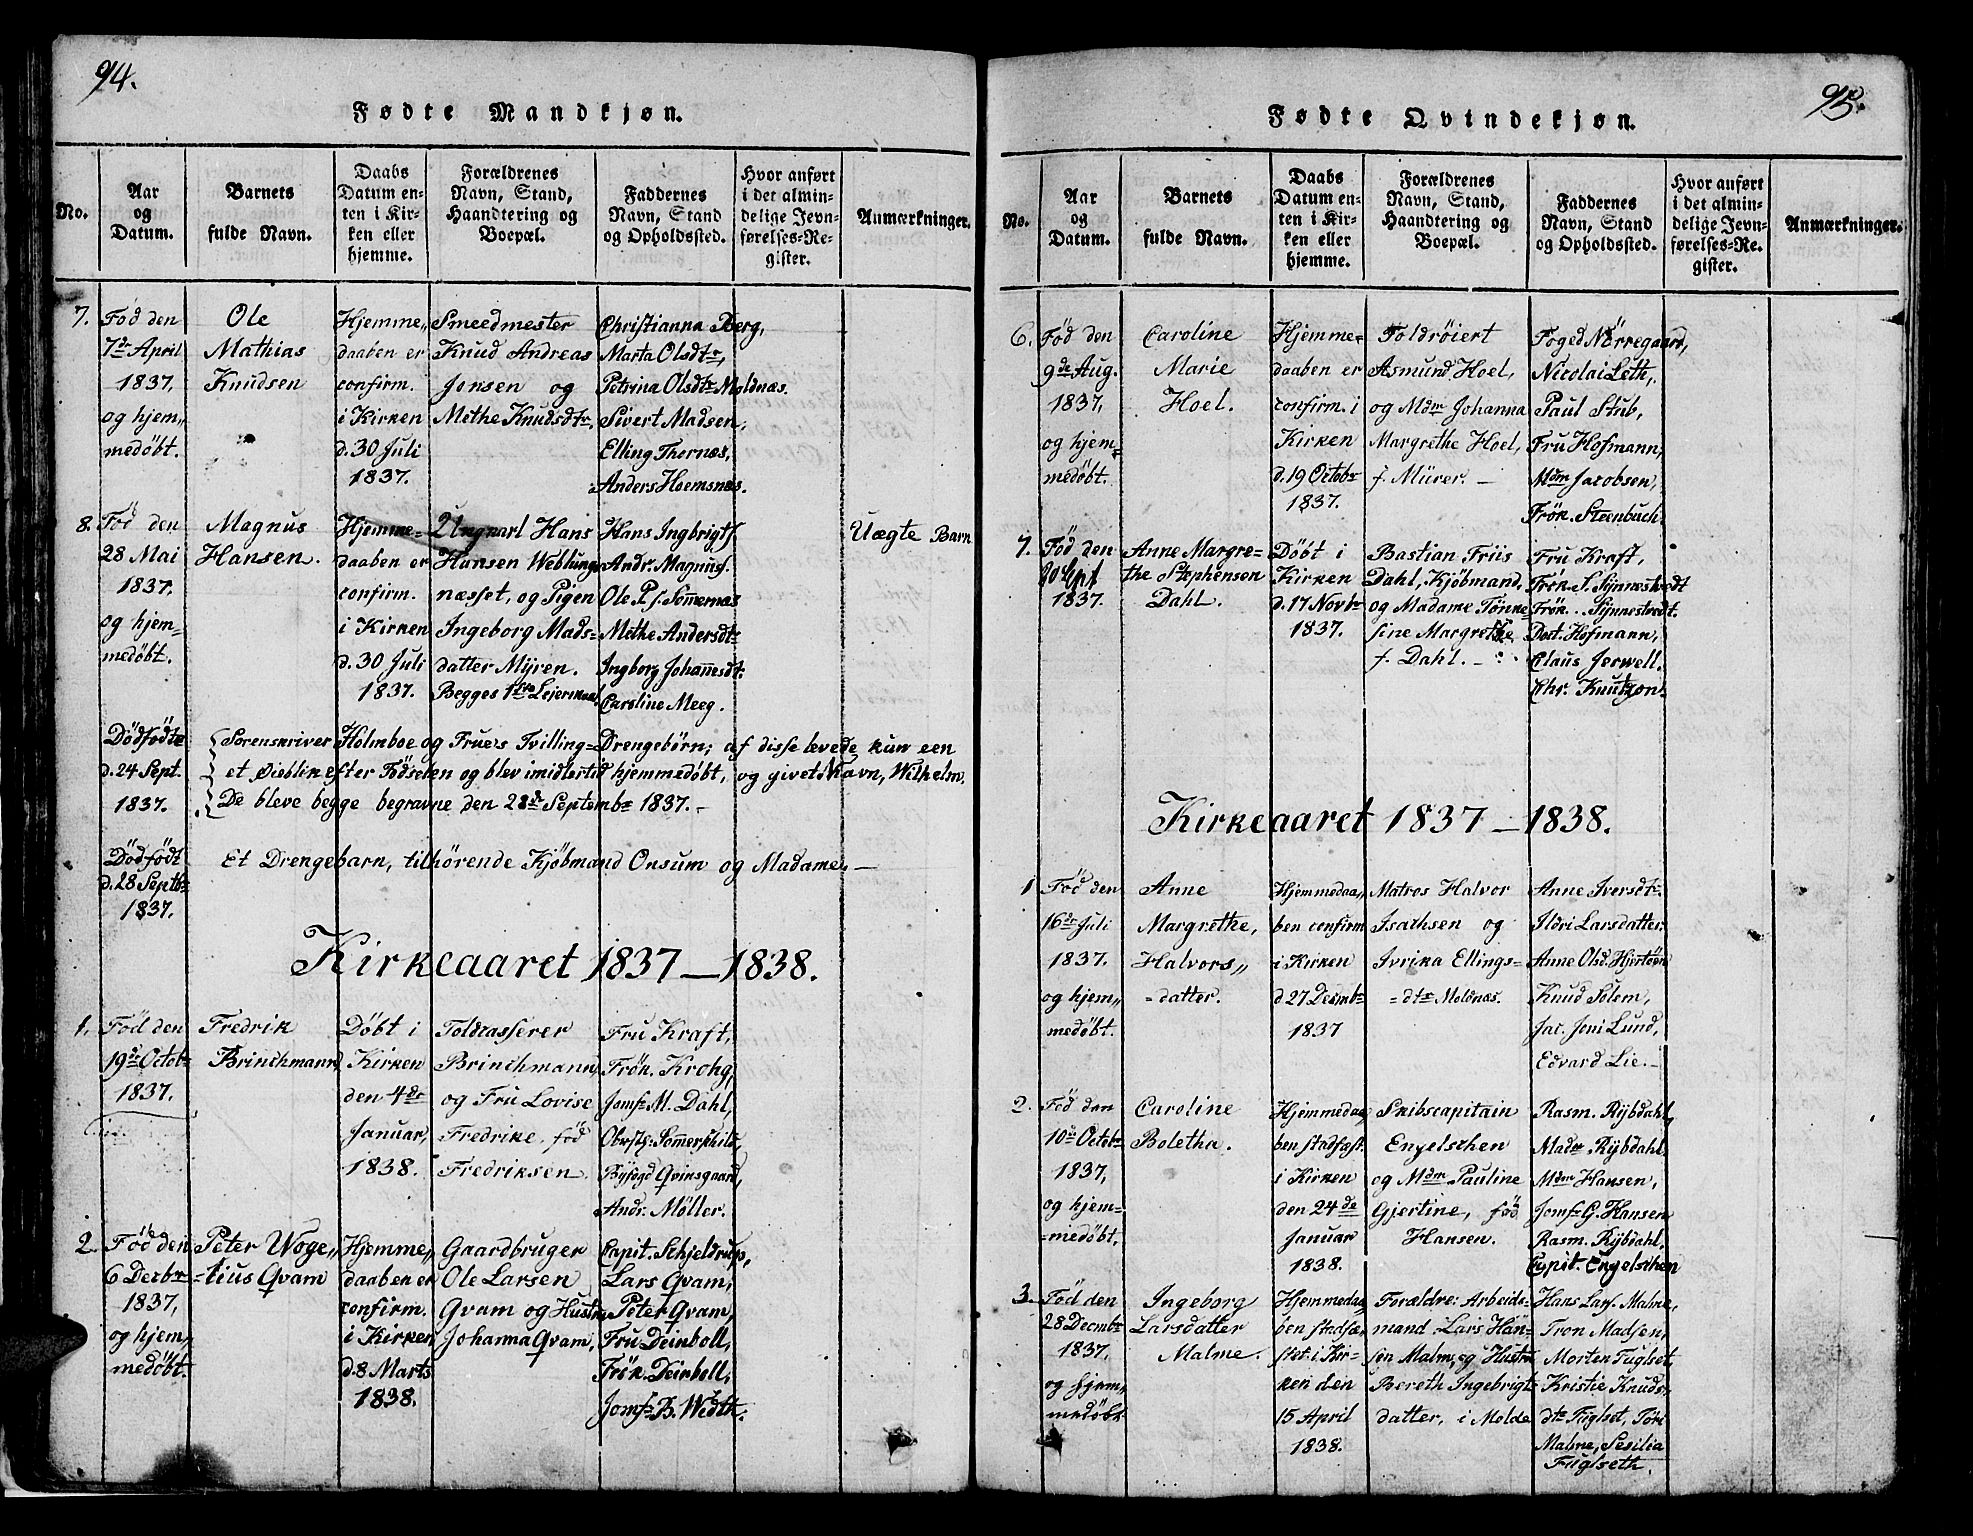 94.
Fødte Mandkjøn.
No.
Aar
og
Datum.
Barnets
fulde Navn.
Daabs
Datum en-
ten i Kir-
ken eller
hjemme.
Forældrenes
Navn, Stand,
Haandtering og
Boepæl.
Faddernes
Navn, Stand
og Opholdssted.
Hvor anført
i det almin-
delige Jevn-
førelses-Re-
gister.
Anmærkninger.
7.
Fød den
7de April
1837.
og hjem„
medøbt.
Ole
Mathias
Knudsen
Hjemme„
daaben er
confirm.
i Kirken
d. 30 Juli
1837.
Smeedmester
Knud Andreas
Jonsen og
Methe Knudsdtr.
Christianna Berg,
Marta Olsdtr,
Petrina Olsdtr Moldnæs.
Sivert Madsen,
Elling Thornæs,
Anders Hoemsnæs.
8.
Fød den
28 Mai
1837.
og hjem=
medøbt.
Magnus
Hansen.
Hjemme=
daaben er
confirm.
i Kirken
d. 30 Juli
1837.
Ungkarl Hans
Hansen Weblungs
næsset, og Pigen
Ingeborg Mads=
datter Myren.
Begges 1ste Lejermaal
Hans Ingbrigts.
Andr. Magnus.
Ole P.s. Sønnernæs
Methe Andersdtr
Ingborg Johannesdt.
Caroline Meeg.
Uægte Barn
Dødfødte
d. 24 Sept.
1837.
Sorenskriver Holmboe og Frue's Tvilling=Drengebørn; af disse levede kun een
et Øieblik efter Fødselen og blev imidlertid hjemmedøbt, og givet Navn, Wilhelm.
De bleve begge begravne den 28de Septembr 1837. -
Dødfødt
d. 28 Septbr
1837.
Et Drengebarn, tilhørende Kjøbmand Onsum og Madame. —
Kirkeaaret 1837—1838.
1.
Fød den
19de Octobr
1837.
Fredrik
Brinchmann
Døbt i
Kirken
den 4de
Januar,
1838.
Toldcasserer
Brinchmann
og Fru Lovise
Fredrike, fød
Fredriksen
Fru Kraft,
Frøk. Krohg,
Jomfr M. Dahl,
Obrstl: Sømerschild,
Byfogd Qvinsgaard,
Andr. Møller.
2.
Fød den
6 Decbr
1837,
og hjem„
medøbt.
Peter Woge„
=tius Qvam
Hjemme„
daaben er
confirm.
i Kirken
d. 8 Marts
1838.
Gaardbruger
Ole Larsen
Qvam og Hustru
Johanna Qvam,
Capit. Schjeldrup,
Lars Qvam,
Peter Qvam,
Fru Deinboll,
Frøk. Deinboll,
Jomfr B. Wedth.
95.
Fødte Qvindekjøn.
No.
Aar
og
Datum.
Barnets
fulde Navn.
Daabs
Datum en-
ten i Kir-
ken eller
hjemme.
Forældrenes
Navn, Stand,
Haandtering og
Boepæl.
Faddernes
Navn, Stand
og Opholdssted.
Hvor anført
i det almin-
delige Jevn-
førelses-Re-
gister.
Anmærkninger.
6.
Fød den
9de Aug.
1837,
og hjem=
medøbt.
Caroline
Marie
Hoel.
Hjemme=
daaben er
confirm. i
Kirken
d. 19 Octobr
1837.
Toldrøiert
Asmund Hoel,
og Mdm Johanna
Margrethe Hoel,
f. Mürer. —
Foged Nørregaard,
Nicolai Leth,
Paul Stub,
Fru Hofmann,
Mdm Jacobsen,
Frøk. Steenbuch.
7.
Fød den
20 Sept
1837.
Anne Margre=
the Stephensen
Dahl.
Døbt i
Kirken
d. 17 Novbr
1837.
Bastian Friis
Dahl, Kjøbmand,
og Madame Tønne
sine Margrethe
f. Dahl. —
Fru Kraft,
Frøk. S. Synnestvedt
Frøk. . Synnestvedt.
Doct. Hofmann,
Claus Jerwell.
Chr. Knutzon
Kirkeaaret 1837—1838.
1
Fød den
16de Juli
1837.
og hjem„
medøbt.
Anne
Margrethe,
Halvors„
=datter.
Hjemmedaa„
ben confirm
i Kirken
d 27 Decmbr
1837
Matros Halvor
Isachsen og
Ivrika Ellings=
=dtr Moldnæs.
Anne Iversdtr
Ildri Larsdatter
Anne Olsd. Hjertøen
Knud Solem,
Jac. Joni Lund,
Edvard Lie. —
2.
Fød den
10de Octobr
1837,
og hjem=
=medøbt,
Caroline
Boletha.
Hjemmedaa„
ben stadfæst.
i Kirken
den 24de
Januar
1838.
Skibscapitain
Engelschen
og Mdm Pauline
Gjertine, fød
Hansen.
Rasm. Rybdahl,
Madm Rybdahl,
Mdm Hansen,
Jomfr G. Hansen
Rasm. Rybdahl,
Capit. Engelschen
3.
Fød den
28 Decmbr
1837.
og hjem,
medøbt
Ingeborg
Larsdatter
Malme.
Hjemmedaa„
ben stadfæ=
stet i Kir=
ken den
15 April
1838.
Forældre: Arbeids=
mand Lars Han=
sen Malm, og Hustru
Bereth Ingebrigt=
datter, i Molde
Hans Lars. Malme,
Tron Madsen,
Morten Fuglset,
Kristie Knuds=
dtr Fuglset, Tøri
Malme, Sesilia
Fuglseth.